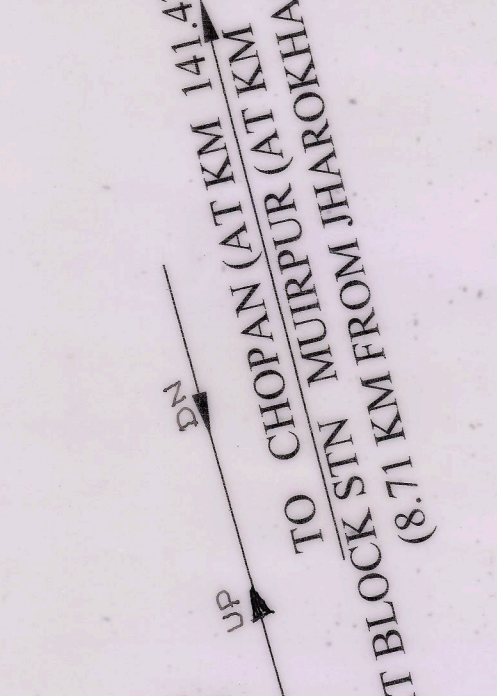 TO CHOPAN (AT KM 141.4
T BLOCK STN MUIRPUR (AT KM
(8.71 KM FROM JHAROKHA
DN
UP